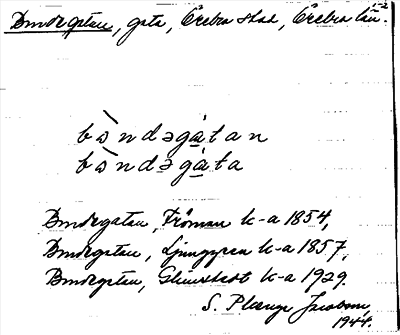 Bondegatan, gata, Örebro stad, Örebro län.
bòndəgàtan
bòndəgàta
Bondegatan, Fröman k-a 1854,
Bondegatan, Ljunggren k-a 1857,
Bondegatan, Glimstedt k-a 1929.
S. Plænge Jacobson,
1944.